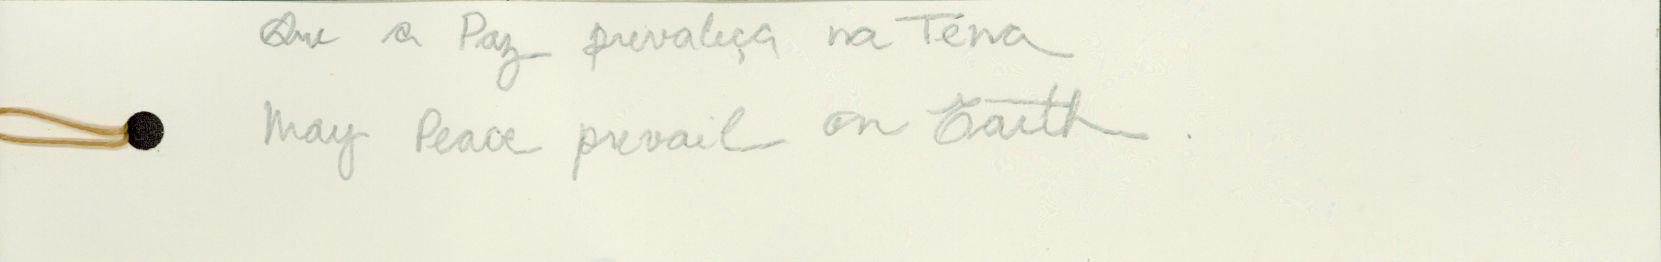 Que a Paz prevaleça na Terra
May Peace prevail on Earth.